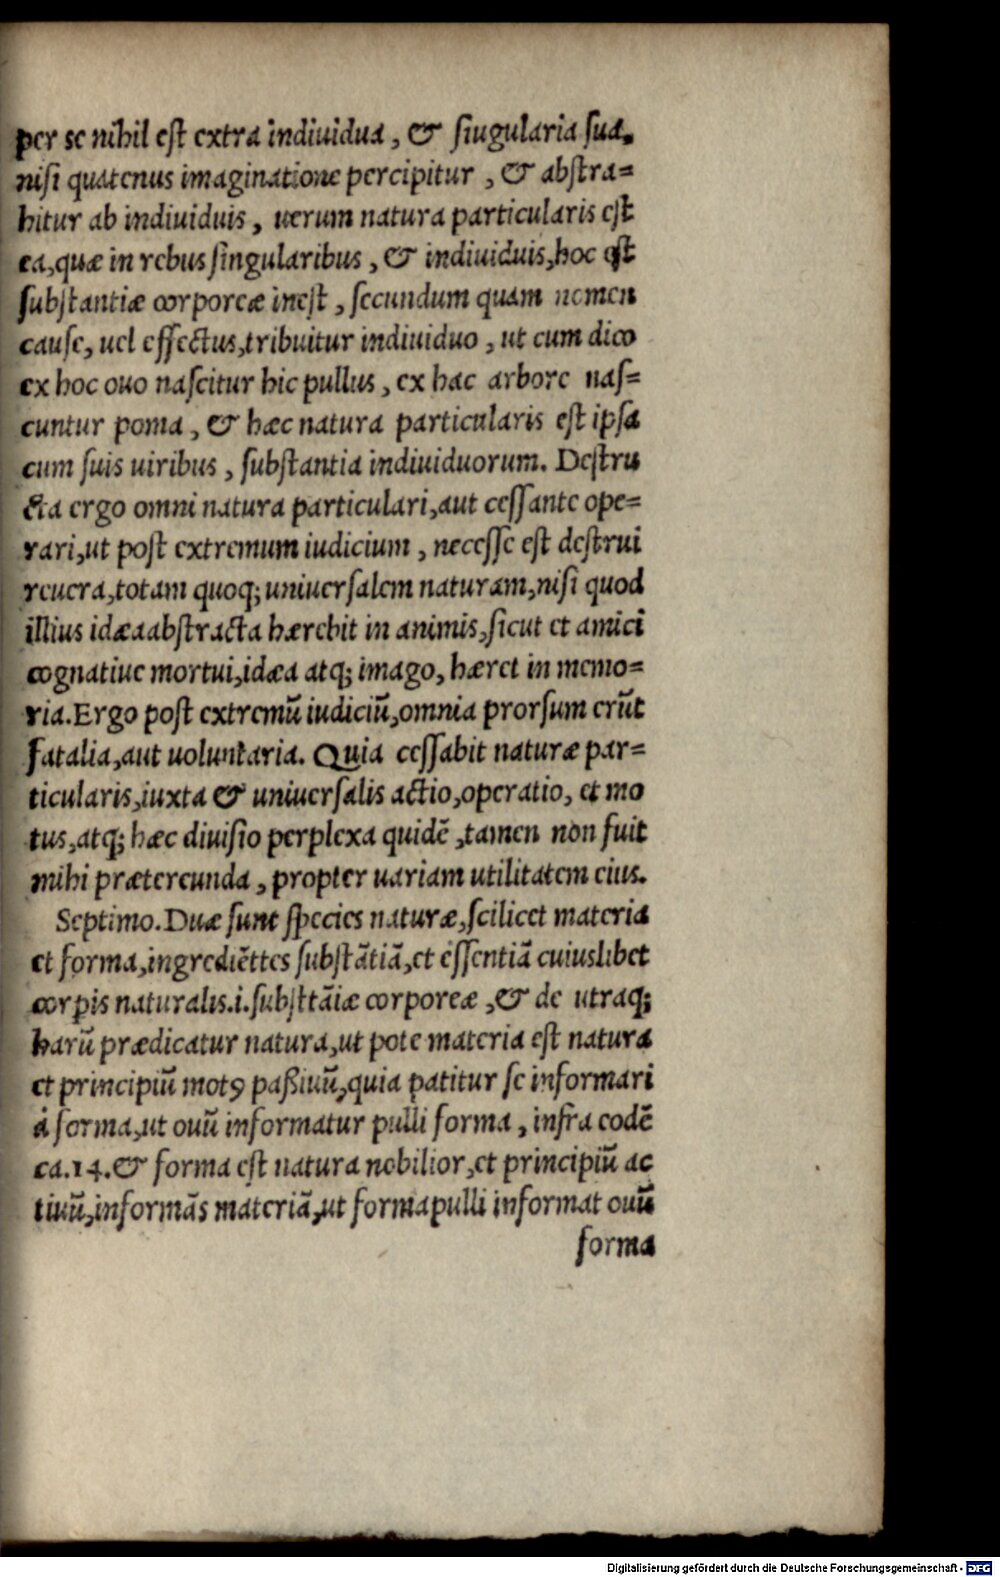 per se nihil est extra indiuidua, & siugularia sua,
nisi quatenus imaginatione percipitur, & abstra=
hitur ab indiuiduis, uerum natura particularis est
ea, quæ in rebus singularibus, & indiuiduis, hoc est
substantiæ corporeæ inest, secundum quam nomen
cause, uel effectus, tribuitur indiuiduo, ut cum dico
ex hoc ouo nascitur hic pullus, ex hac arbore nas=
cuntur poma, & hæc natura particularis est ipsa
cum suis uiribus, substantia indiuiduorum. Destru
cta ergo omni natura particulari, aut cessante ope=
rari, ut post extremum iudicium, necesse est destrui
reuera, totam quoq; uniuersalem naturam, nisi quod
illius idæa abstracta hærebit in animis, sicut et amici
cognatiue mortui, idæa atq; imago, hæret in memo=
ria. Ergo post extremũ iudiciũ, omnia prorsum erũt
fatalia, aut uoluntaria. Quia cessabit naturæ par=
ticularis, iuxta & uniuersalis actio, operatio, et mo
tus, atq; hæc diuisio perplexa quidẽ, tamen non fuit
mihi prætereunda, propter uariam utilitatem eius.
Septimo. Duæ sunt species naturæ, scilicet materia
et forma, ingrediẽttes substãtiã, et essentiã cuiuslibet
corpis naturalis .i. substtãiæ corporeæ, & de utraq;
harũ prædicatur natura, ut pote materia est natura
et principiũ motꝰ paßiuũ, quia patitur se informari
à forma, ut ouũ informatur pulli forma, infra eodẽ
ca. 14. & forma est natura nobilior, et principiũ ac
tiuũ, informãs materiã, ut forma pulli informat ouũ
forma
Digitalisierung gefördert durch die Deutsche Forschungsgemeinschaft - DFG